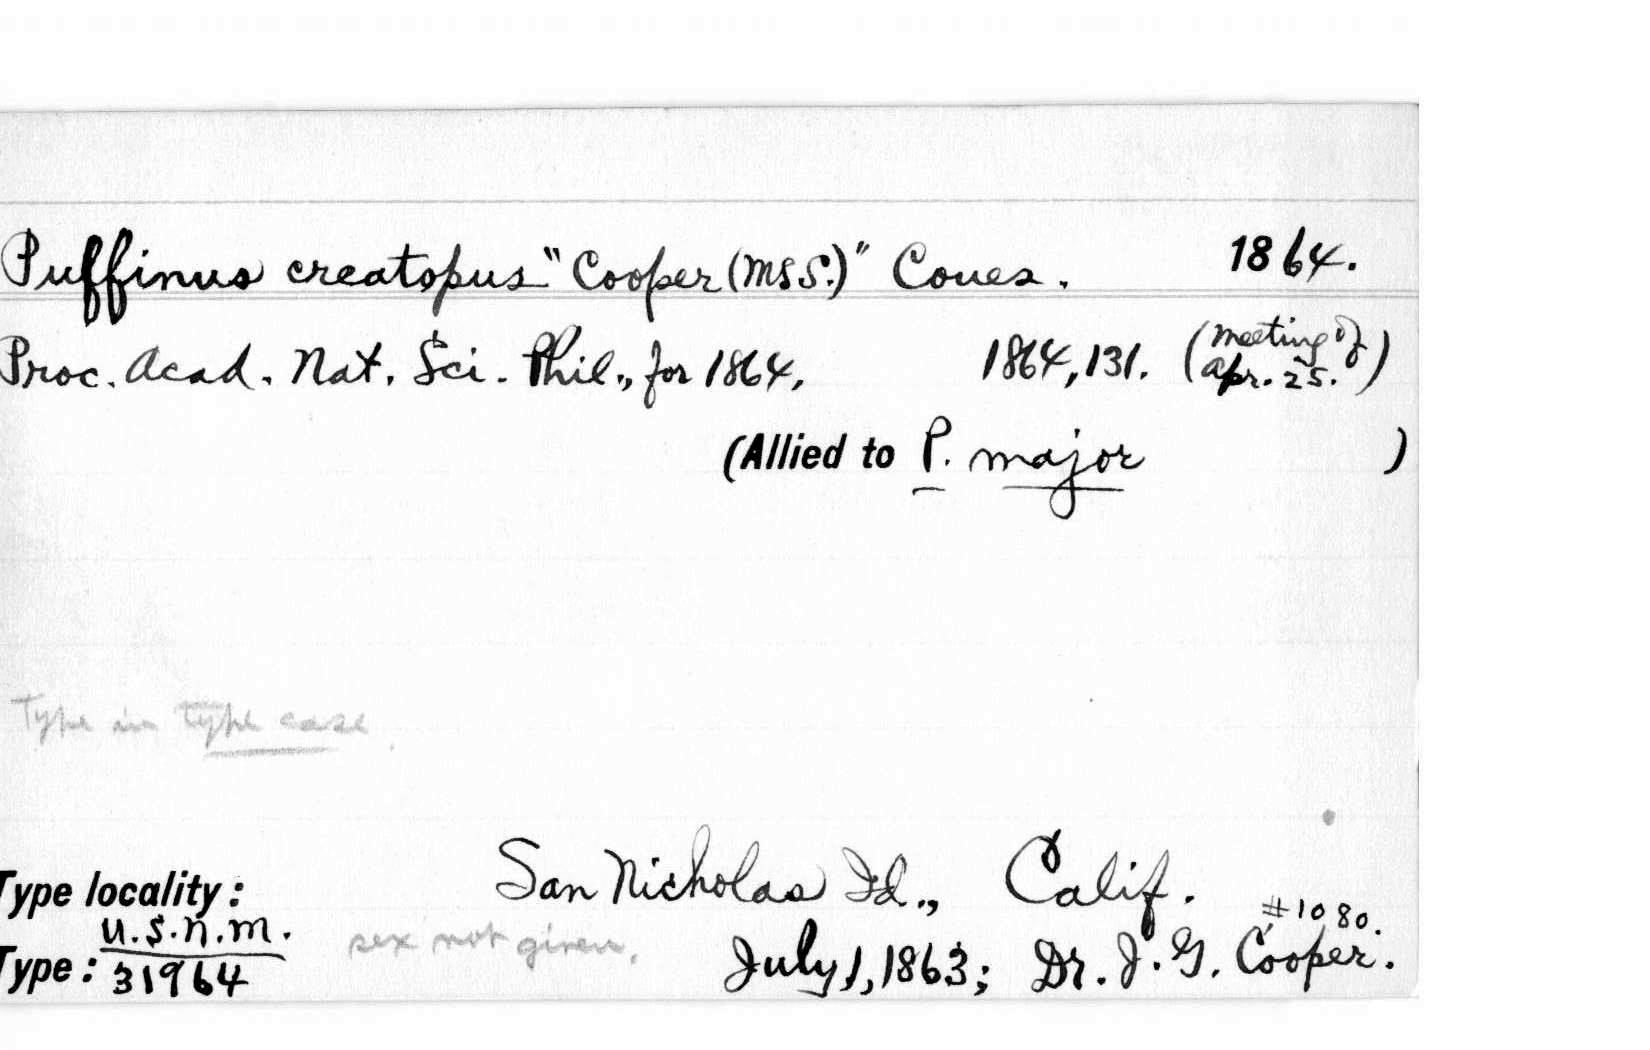 Puffinus creatopus "Cooper (MSS.)" Coues. 1864.
Proc. Acad. Nat. Sci. Phil., for 1864, 1864, 131. (Meeting of Apr. 25.)
(Allied to P. major )
Type in type case
Type locality: San Nicholas Id., Calif.
#1080.
Type: U.S.N.M. 31964 sex not given. July 1, 1863; Dr. J. G. Cooper.